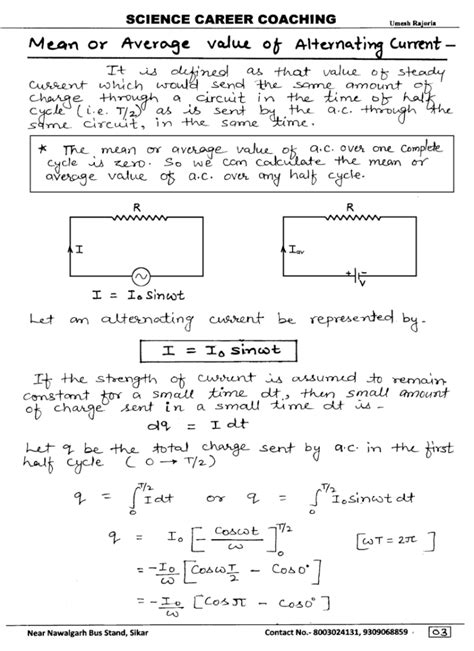 SCIENCE CAREER COACHING
Umesh Rajoria
Mean or Average value of Alternating Current –
It is defined as that value of steady
current which would send the same amount of
charge through a circuit in the time of half
cycle (i.e. T/2) as is sent by the a.c. through the
same circuit, in the same time.
* The mean or average value of a.c. over one complete
cycle is zero. So we can calculate the mean or
average value of a.c. over any half cycle.
R R
I Iav
~ + -
I = I₀ sinωt
Let an alternating current be represented by -
I = I₀ sinωt
If the strength of current is assumed to remain
constant for a small time dt, then small amount
of charge sent in a small time dt is -
dq = I dt
Let q be the total charge sent by a.c. in the first
half cycle ( 0 → T/2 )
q = ∫₀^T/2 I dt or q = ∫₀^T/2 I₀ sinωt dt
q = I₀ [ - Cosωt / ω ]₀^T/2 [ωT = 2π]
= - I₀/ω [ Cosω T/2 - Cos0° ]
= - I₀/ω [ Cosπ - Cos0° ]
Near Nawalgarh Bus Stand, Sikar Contact No.- 8003024131, 9309068859 · 03